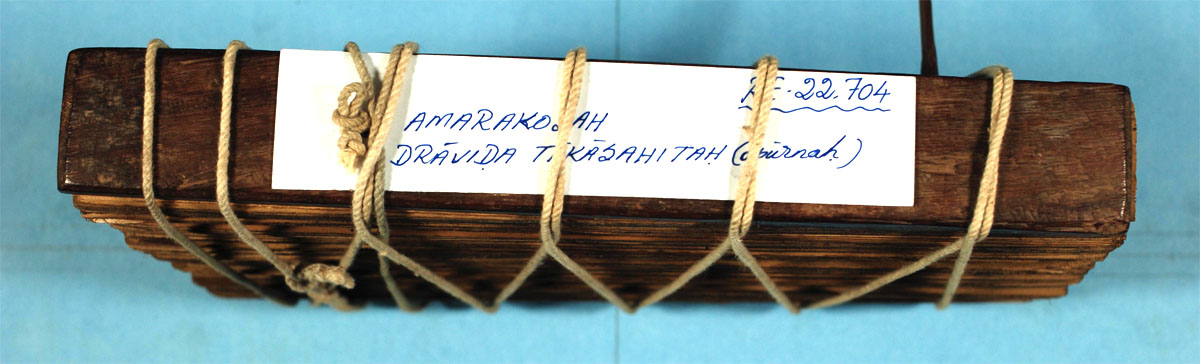 RE-22.704
AMARAKOŚAH
DRĀVIḌA TĪKĀSAHITAḤ (apūrnaḥ)